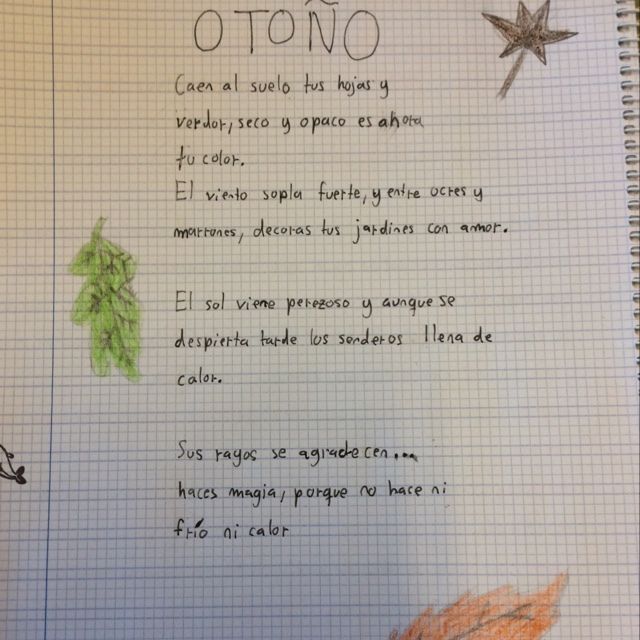 OTOÑO
Caen al suelo tus hojas y
verdor, seco y opaco es ahora
tu color.
El viento sopla fuerte, y entre ocres y
marrones, decoras tus jardines con amor.
El sol viene perezoso y aunque se
despierta tarde los senderos llena de
calor.
Sus rayos se agradecen...
haces magia, porque no hace ni
frío ni calor